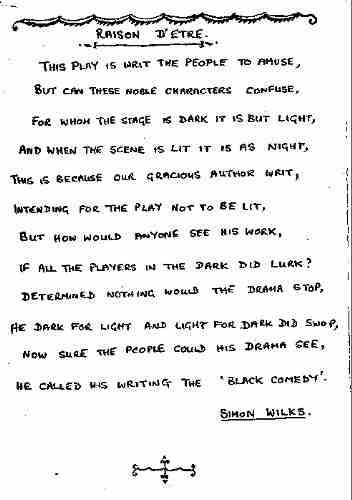 RAISON D'ETRE.
THIS PLAY IS WRIT THE PEOPLE TO AMUSE,
BUT CAN THESE NOBLE CHARACTERS CONFUSE,
FOR WHOM THE STAGE IS DARK IT IS BUT LIGHT,
AND WHEN THE SCENE IS LIT IT IS AS NIGHT,
THIS IS BECAUSE OUR GRACIOUS AUTHOR WRIT,
INTENDING FOR THE PLAY NOT TO BE LIT,
BUT HOW WOULD ANYONE SEE HIS WORK,
IF ALL THE PLAYERS IN THE DARK DID LURK?
DETERMINED NOTHING WOULD THE DRAMA STOP,
HE DARK FOR LIGHT AND LIGHT FOR DARK DID SWOP,
NOW SURE THE PEOPLE COULD HIS DRAMA SEE,
HE CALLED HIS WRITING THE 'BLACK COMEDY'.
SIMON WILKS.